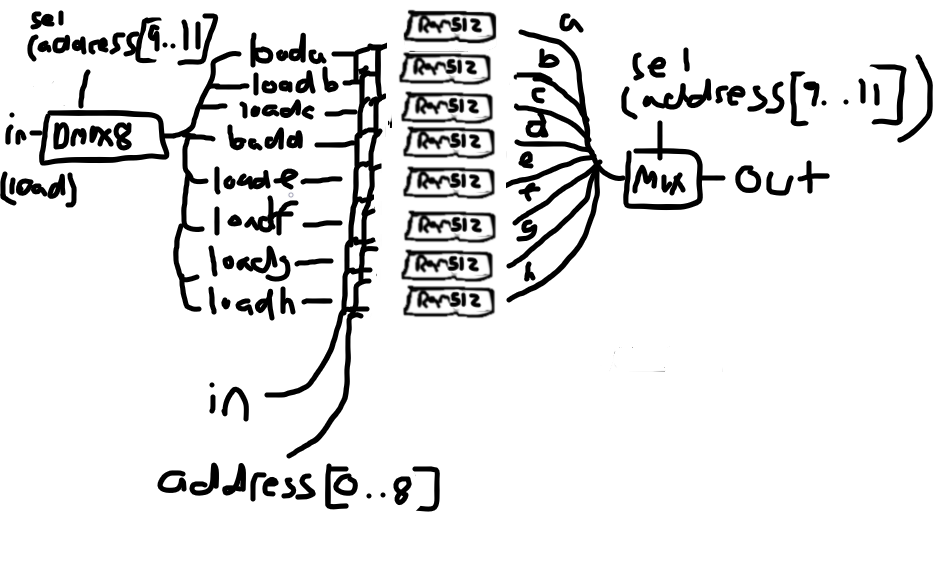 sel
(address[9..11]
in
Dmux8
(load)
loada
loadb
loadc
loadd
loade
loadf
loadg
loadh
Ram512
Ram512
Ram512
Ram512
Ram512
Ram512
Ram512
Ram512
a
b
c
d
e
f
g
h
sel
(address[9..11])
Mux
out
in
address[0..8]